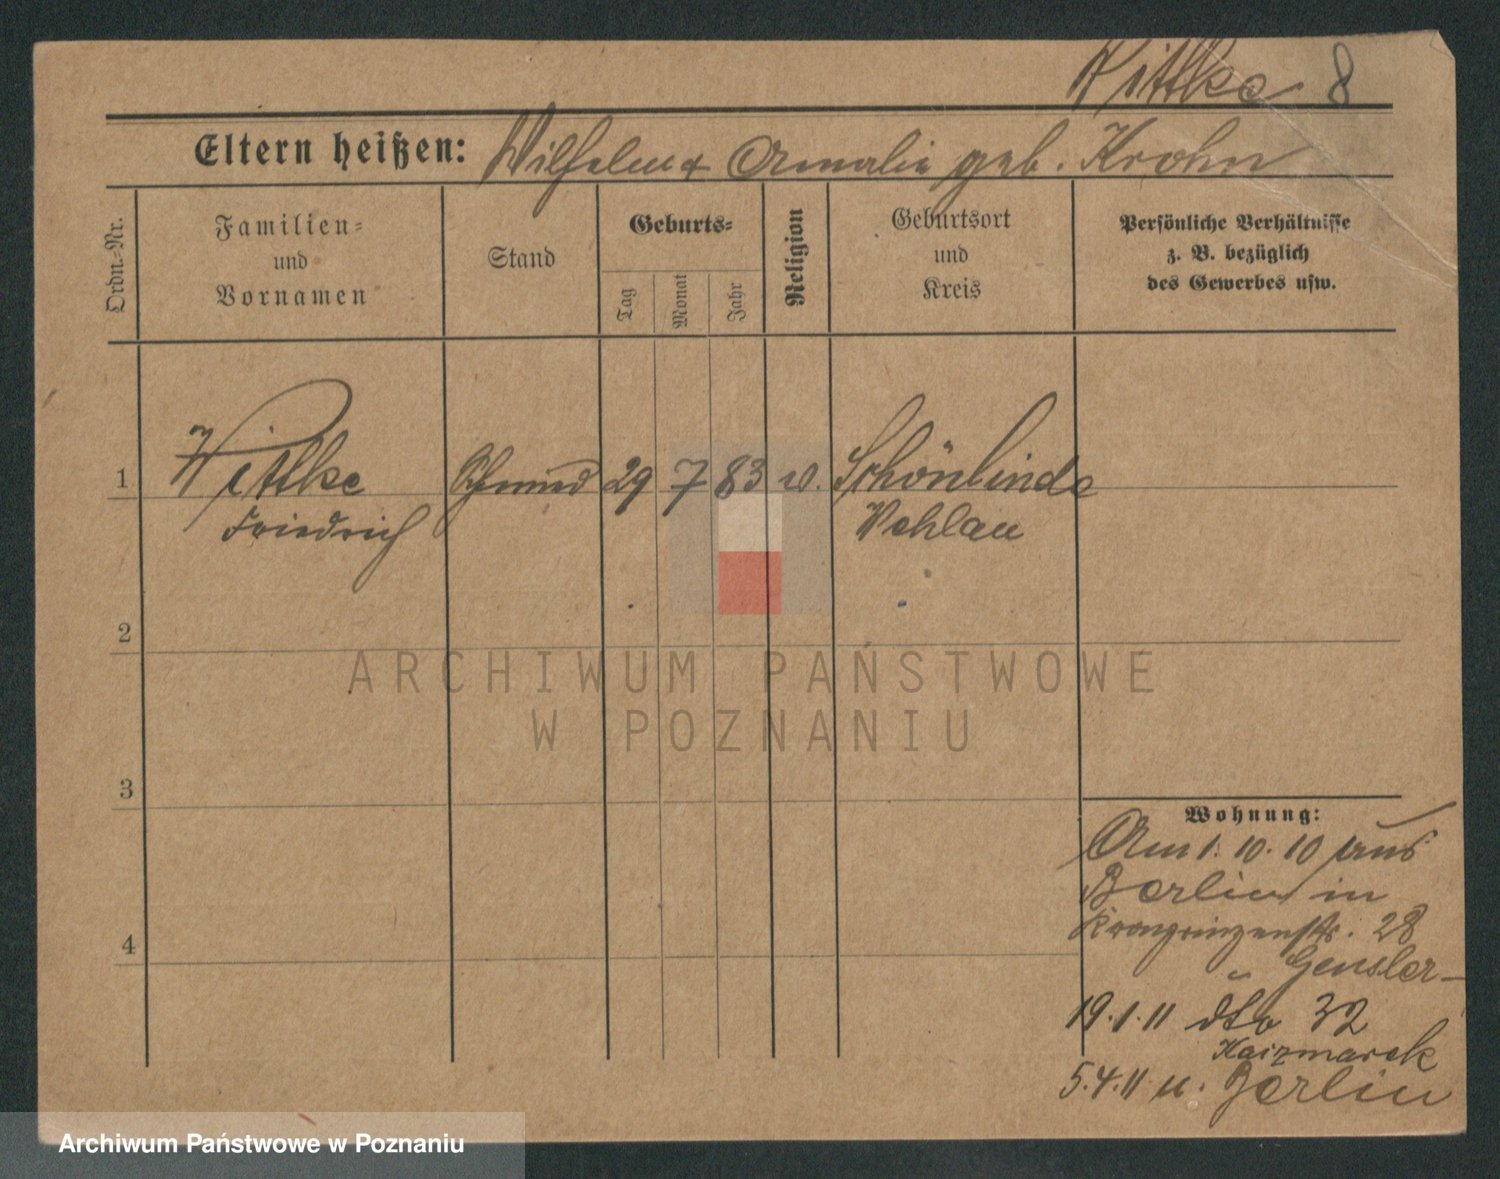 Wittke 8
Eltern heißen: Wilhelm & Amalie geb. Krohn
Ordn.-Nr.
Familien-
und
Vornamen
Stand
Geburts-
Tag
Monat
Jahr
Religion
Geburtsort
und
Kreis
Persönliche Verhältnisse
z. B. bezüglich
des Gewerbes usw.
1 Wittke 29 7 83 Schönlinde
Friedrich Wehlau
2
3
4
Wohnung:
Am 1.10.10 aus
Berlin in
Kronprinzenstr. 28
Gensler
19.1.11 dto 32
Kaczmarek
5.4.11 n. Berlin
ARCHIWUM PAŃSTWOWE
W POZNANIU
Archiwum Państwowe w Poznaniu